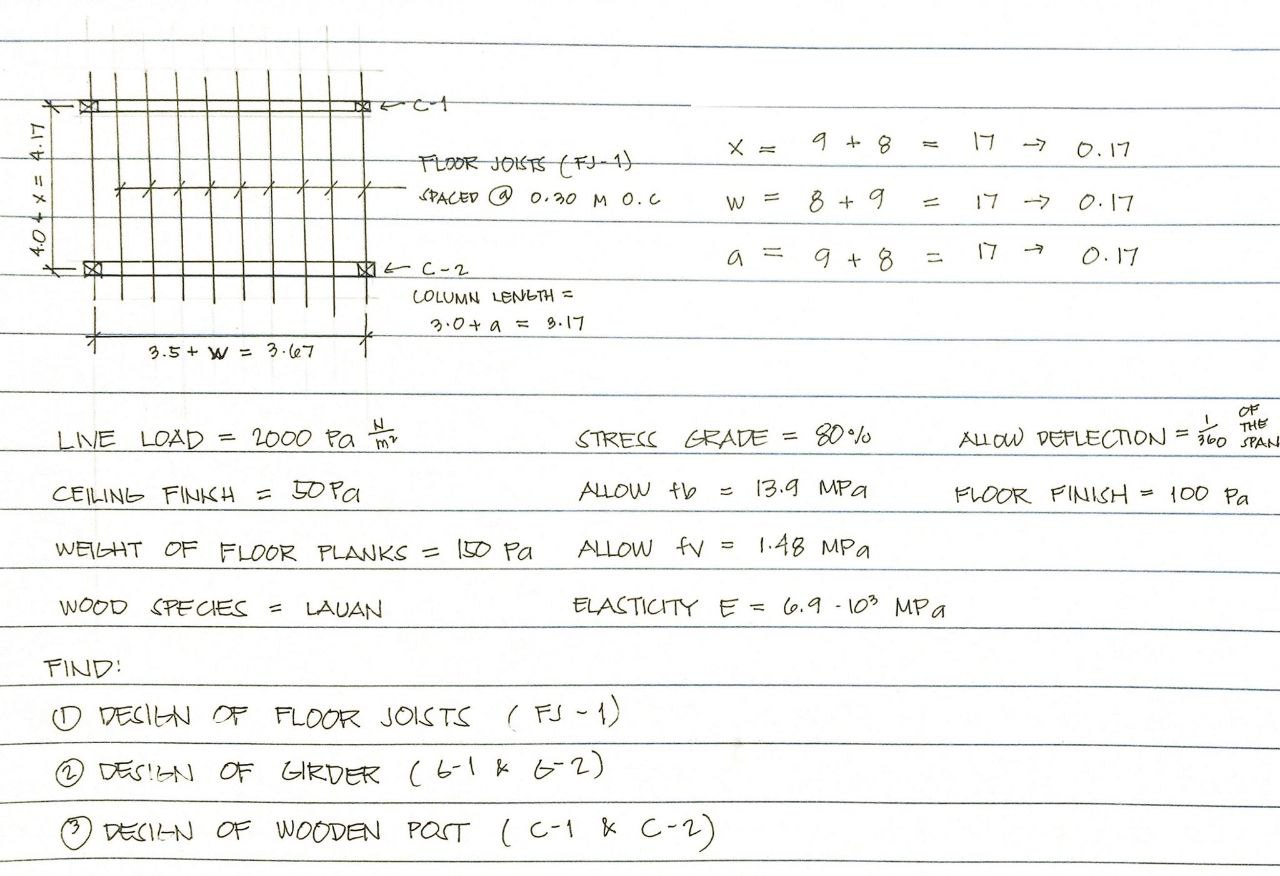 ← C-1
4.0 + x = 4.17
FLOOR JOISTS (FJ-1)
SPACED @ 0.30 M O.C
← C-2
COLUMN LENGTH =
3.0 + a = 3.17
3.5 + W = 3.67
X = 9 + 8 = 17 → 0.17
W = 8 + 9 = 17 → 0.17
a = 9 + 8 = 17 → 0.17
LIVE LOAD = 2000 Pa N/m² STRESS GRADE = 80% ALLOW DEFLECTION = 1/360 OF THE SPAN
CEILING FINISH = 50 Pa ALLOW fb = 13.9 MPa FLOOR FINISH = 100 Pa
WEIGHT OF FLOOR PLANKS = 150 Pa ALLOW fv = 1.48 MPa
WOOD SPECIES = LAUAN ELASTICITY E = 6.9 · 10³ MPa
FIND:
① DESIGN OF FLOOR JOISTS (FJ-1)
② DESIGN OF GIRDER (G-1 & G-2)
③ DESIGN OF WOODEN POST (C-1 & C-2)